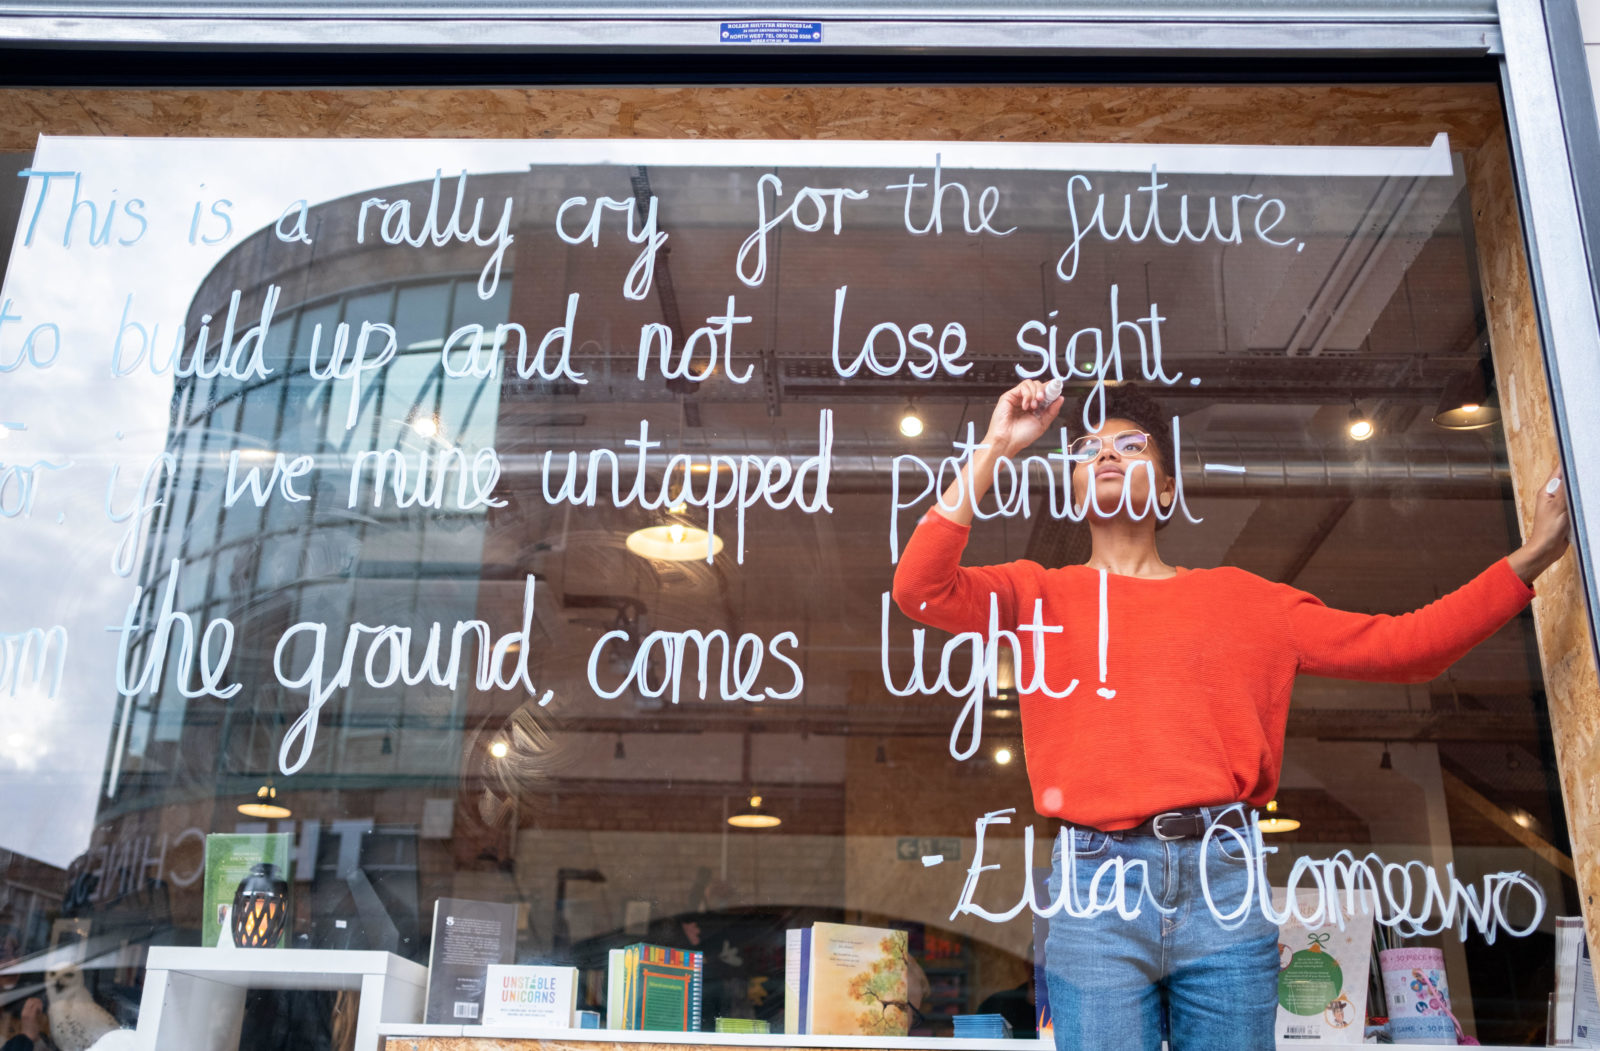 ROLLER SHUTTER SERVICES Ltd.
24 HOUR EMERGENCY REPAIRS
NORTH WEST TEL 0800 328 9356
This is a rally cry for the future,
to build up and not lose sight.
For, if we mine untapped potential –
om the ground, comes light!
- Ella Otomewo
UNSTABLE
UNICORNS
30 PIECE
GAME • 30 PIEC